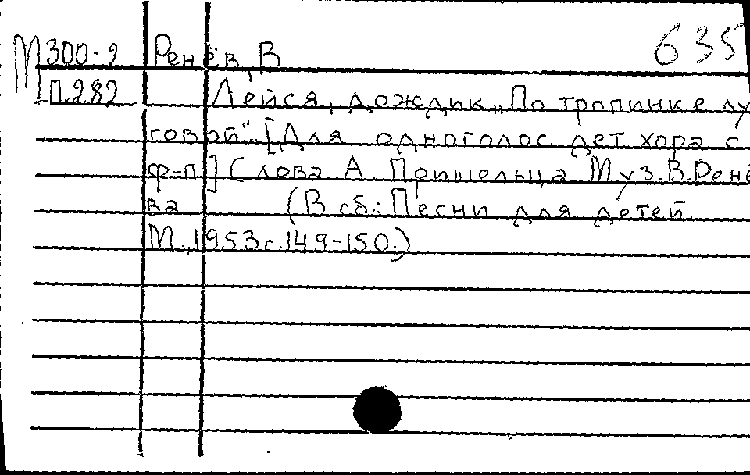 М300-2 Ренёв, В 635
П.282 Лейся, дождик „По тропинке лу
говой". [Для одноголос дет хора с
ф-п] Слова А. Пришельца Муз. В. Рене
ва (В сб.: Песни для детей
М., 1953 с. 149-150.)